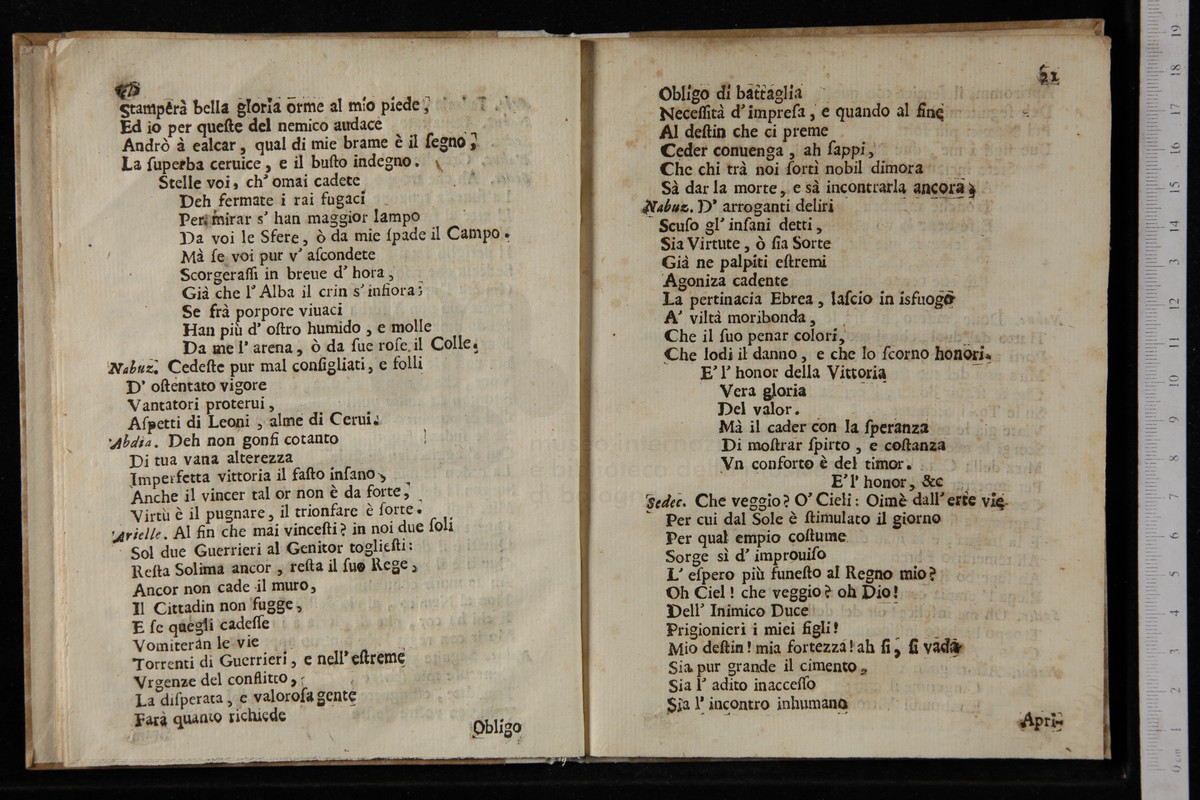 Stamperà bella gloria orme al mio piede,
Ed io per queſte del nemico audace
Andrò à calcar, qual di mie brame è il ſegno,
La ſuperba ceruice, e il buſto indegno.
Stelle voi, ch' omai cadete
Deh fermate i rai fugaci
Per mirar s' han maggior lampo
Da voi le Sfere, ò da mie ſpade il Campo.
Mà ſe voi pur v' aſcondete
Scorgeraſſi in breue d' hora,
Già che l' Alba il crin s' infiora;
Se frà porpore viuaci
Han più d' oſtro humido, e molle
Da me l' arena, ò da ſue roſe il Colle.
Nabuz. Cedeſte pur mal conſigliati, e folli
D' oſtentato vigore
Vantatori proterui,
Aſpetti di Leoni, alme di Cerui.
Abdia. Deh non gonfi cotanto
Di tua vana alterezza
Imperfetta vittoria il faſto inſano,
Anche il vincer tal or non è da forte,
Virtù è il pugnare, il trionfare è ſorte.
Arielle. Al fin che mai vinceſti? in noi due ſoli
Sol due Guerrieri al Genitor toglieſti:
Reſta Solima ancor, reſta il ſuo Rege,
Ancor non cade il muro,
Il Cittadin non fugge,
E ſe quegli cadeſſe
Vomiteràn le vie
Torrenti di Guerrieri, e nell' eſtreme
Vrgenze del conflitto,
La diſperata, e valoroſa gente
Farà quanto richiede
Obligo
21
Obligo di battaglia
Neceſſità d' impreſa, e quando al fine
Al deſtin che ci preme
Ceder conuenga, ah ſappi,
Che chi trà noi ſortì nobil dimora
Sà dar la morte, e sà incontrarla ancora.
Nabuz. D' arroganti deliri
Scuſo gl' inſani detti,
Sia Virtute, ò ſia Sorte
Già ne palpiti eſtremi
Agoniza cadente
La pertinacia Ebrea, laſcio in isfuogo
A' viltà moribonda,
Che il ſuo penar colori,
Che lodi il danno, e che lo ſcorno honori.
E' l' honor della Vittoria
Vera gloria
Del valor.
Mà il cader con la ſperanza
Di moſtrar ſpirto, e coſtanza
Vn conforto è del timor.
E' l' honor, &c
Sedec. Che veggio? O' Cieli: Oimè dall' erte vie
Per cui dal Sole è ſtimulato il giorno
Per qual empio coſtume
Sorge sì d' improuiſo
L' eſpero più funeſto al Regno mio?
Oh Ciel! che veggio? oh Dio!
Dell' Inimico Duce
Prigionieri i miei figli!
Mio deſtin! mia fortezza! ah ſi, ſi vada
Sia pur grande il cimento,
Sia l' adito inacceſſo
Sia l' incontro inhumano
Apri-